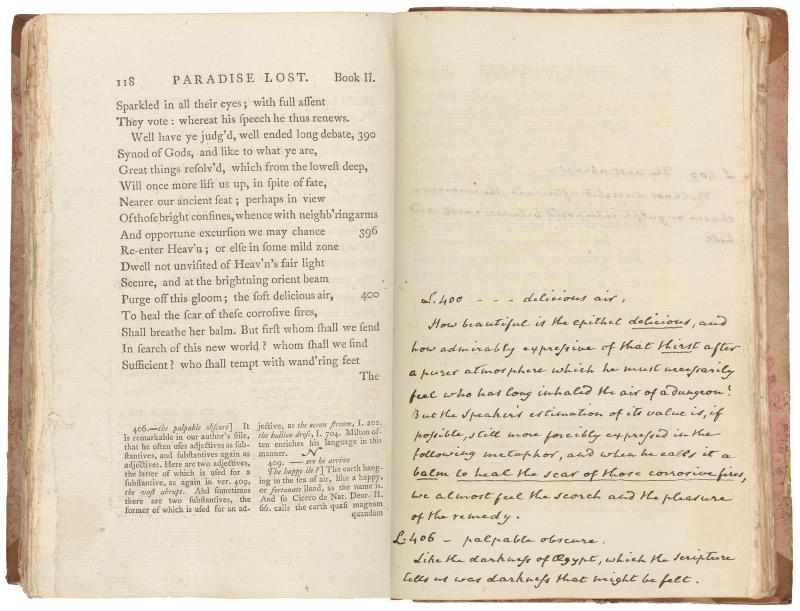 118 PARADISE LOST. Book II.
Sparkled in all their eyes; with full aſſent
They vote: whereat his ſpeech he thus renews.
Well have ye judg'd, well ended long debate, 390
Synod of Gods, and like to what ye are,
Great things reſolv'd, which from the loweſt deep,
Will once more lift us up, in ſpite of fate,
Nearer our ancient ſeat; perhaps in view
Of thoſe bright confines, whence with neighb'ring arms
And opportune excurſion we may chance 396
Re-enter Heav'n; or elſe in ſome mild zone
Dwell not unviſited of Heav'n's fair light
Secure, and at the brightning orient beam
Purge off this gloom; the ſoft delicious air, 400
To heal the ſcar of theſe corroſive fires,
Shall breathe her balm. But firſt whom ſhall we ſend
In ſearch of this new world? whom ſhall we find
Sufficient? who ſhall tempt with wand'ring feet
The
406.—the palpable obſcure] It
is remarkable in our author's ſtile,
that he often uſes adjectives as ſub-
ſtantives, and ſubſtantives again as
adjectives. Here are two adjectives,
the latter of which is uſed for a
ſubſtantive, as again in ver. 409,
the vaſt abrupt. And ſometimes
there are two ſubſtantives, the
former of which is uſed for an ad-
jective, as the ocean ſtream, I. 202.
the bullion droſs, I. 704. Milton of-
ten enriches his language in this
manner. N
409. — ere he arrive
The happy ile?] The earth hang-
ing in the ſea of air, like a happy,
or fortunate iland, as the name is.
And ſo Cicero de Nat. Deor. II.
66. calls the earth quaſi magnam
quandam
L. 400 - - - delicious air.
How beautiful is the epithet delicious, and
how admirably expressive of that thirst after
a purer atmosphere which he must necessarily
feel who has long inhaled the air of a dungeon!
But the Speaker's estimation of its value is, if
possible, still more forcibly expressed in the
following metaphor, and when he calls it a
balm to heal the scar of those corrosive fires,
we almost feel the scorch and the pleasure
of the remedy.
L. 406 - palpable obscure.
Like the darkness of Ægypt, which the scripture
tells us was darkness that might be felt.